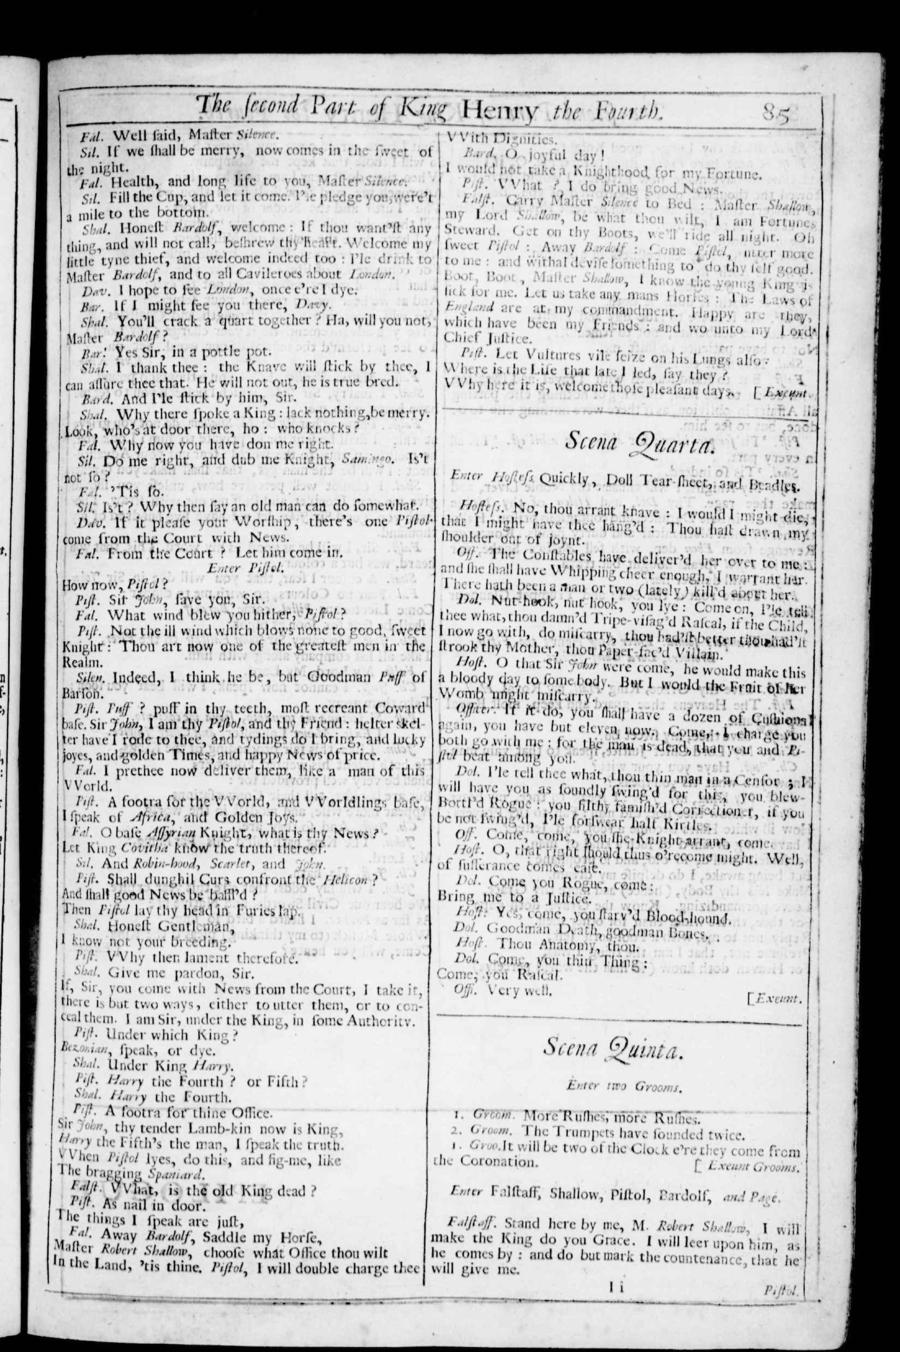 The ſecond Part of King Henry the Fourth. 85
Fal. Well ſaid, Maſter Silence.
Sil. If we ſhall be merry, now comes in the ſweet of
the night.
Fal. Health, and long life to you, Maſter Silence.
Sil. Fill the Cup, and let it come. I'le pledge you, were't
a mile to the bottom.
Shal. Honeſt Bardolf, welcome: If thou want'ſt any
thing, and will not call, beſhrew thy heart. Welcome my
little tyne thief, and welcome indeed too: I'le drink to
Maſter Bardolf, and to all Cavileroes about London.
Dav. I hope to ſee London, once e're I dye.
Bar. If I might ſee you there, Davy.
Shal. You'll crack a quart together? Ha, will you not,
Maſter Bardolf?
Bar. Yes Sir, in a pottle pot.
Shal. I thank thee: the Knave will ſtick by thee, I
can aſſure thee that. He will not out, he is true bred.
Bard. And I'le ſtick by him, Sir.
Shal. Why there ſpoke a King: lack nothing, be merry.
Look, who's at door there, ho: who knocks?
Fal. Why now you have don me right.
Sil. Do me right, and dub me Knight, Samingo. Is't
not ſo?
Fal. 'Tis ſo.
Sil. Is't? Why then ſay an old man can do ſomewhat.
Dav. If it pleaſe your Worſhip, there's one Piſtol
come from the Court with News.
Fal. From the Court? Let him come in.
Enter Piſtol.
How now, Piſtol?
Piſt. Sir John, ſave you, Sir.
Fal. What wind blew you hither, Piſtol?
Piſt. Not the ill wind which blows none to good, ſweet
Knight: Thou art now one of the greateſt men in the
Realm.
Silen. Indeed, I think he be, but Goodman Puff of
Barſon.
Piſt. Puff? puff in thy teeth, moſt recreant Coward
baſe. Sir John, I am thy Piſtol, and thy Friend: helter ſkel-
ter have I rode to thee, and tydings do I bring, and lucky
joyes, and golden Times, and happy News of price.
Fal. I prethee now deliver them, like a man of this
VVorld.
Piſt. A footra for the VVorld, and VVorldlings baſe,
I ſpeak of Africa, and Golden Joys.
Fal. O baſe Aſſyrian Knight, what is thy News?
Let King Covitha know the truth thereof.
Sil. And Robin-hood, Scarlet, and John.
Piſt. Shall dunghil Curs confront the Helicon?
And ſhall good News be baffl'd?
Then Piſtol lay thy head in Furies lap.
Shal. Honeſt Gentleman,
I know not your breeding.
Piſt. VVhy then lament therefore.
Shal. Give me pardon, Sir.
If, Sir, you come with News from the Court, I take it,
there is but two ways, either to utter them, or to con-
ceal them. I am Sir, under the King, in ſome Authority.
Piſt. Under which King?
Bezonian, ſpeak, or dye.
Shal. Under King Harry.
Piſt. Harry the Fourth? or Fifth?
Shal. Harry the Fourth.
Piſt. A footra for thine Office.
Sir John, thy tender Lamb-kin now is King,
Harry the Fifth's the man, I ſpeak the truth.
VVhen Piſtol lyes, do this, and fig-me, like
The bragging Spaniard.
Falſt. VVhat, is the old King dead?
Piſt. As nail in door.
The things I ſpeak are juſt,
Fal. Away Bardolf, Saddle my Horſe,
Maſter Robert Shallow, chooſe what Office thou wilt
In the Land, 'tis thine. Piſtol, I will double charge thee
VVith Dignities.
Bard. O joyful day!
I would not take a Knighthood for my Fortune.
Piſt. VVhat? I do bring good News.
Falſt. Carry Maſter Silence to Bed: Maſter Shallow,
my Lord Shallow, be what thou wilt, I am Fortunes
Steward. Get on thy Boots, we'll ride all night. Oh
ſweet Piſtol: Away Bardolf: Come Piſtol, utter more
to me: and withal deviſe ſomething to do thy ſelf good.
Boot, Boot, Maſter Shallow, I know the young King is
ſick for me. Let us take any mans Horſes: The Laws of
England are at my commandment. Happy are they,
which have been my Friends: and wo unto my Lord
Chief Juſtice.
Piſt. Let Vultures vile ſeize on his Lungs alſo:
Where is the Life that late I led, ſay they?
VVhy here it is, welcome thoſe pleaſant days. [Exeunt.
Scena Quarta.
Enter Hoſteſs Quickly, Doll Tear-ſheet, and Beadles.
Hoſteſs. No, thou arrant knave: I would I might die,
that I might have thee hang'd: Thou haſt drawn my
ſhoulder out of joynt.
Off. The Conſtables have deliver'd her over to me:
and ſhe ſhall have Whipping cheer enough, I warrant her.
There hath been a man or two (lately) kill'd about her.
Dol. Nut-hook, nut hook, you lye: Come on, I'le tell
thee what, thou damn'd Tripe-viſag'd Raſcal, if the Child,
I now go with, do miſcarry, thou had'ſt better thou had'ſt
ſtrook thy Mother, thou Paper-fac'd Villain.
Hoſt. O that Sir John were come, he would make this
a bloody day to ſomebody. But I would the Fruit of her
Womb might miſcarry.
Officer. If it do, you ſhall have a dozen of Cuſhions
again, you have but eleven now. Come, I charge you
both go with me: for the man is dead, that you and Pi-
ſtol beat among you.
Dol. I'le tell thee what, thou thin man in a Cenſor; I
will have you as ſoundly ſwing'd for this, you blew-
Bottl'd Rogue: you filthy famiſh'd Correctioner, if you
be not ſwing'd, I'le forſwear half Kirtles.
Off. Come, come, you ſhe-Knight-arrant, come.
Hoſt. O, that right ſhould thus o'recome might. Well,
of ſufferance comes eaſe.
Dol. Come you Rogue, come:
Bring me to a Juſtice.
Hoſt. Yes, come, you ſtarv'd Blood-hound.
Dol. Goodman Death, goodman Bones.
Hoſt. Thou Anatomy, thou.
Dol. Come, you thin Thing:
Come, you Raſcal.
Off. Very well. [Exeunt.
Scena Quinta.
Enter two Grooms.
1. Groom. More Ruſhes, more Ruſhes.
2. Groom. The Trumpets have ſounded twice.
1. Groo. It will be two of the Clock e're they come from
the Coronation. [Exeunt Grooms.
Enter Falſtaff, Shallow, Piſtol, Bardolf, and Page.
Falſtaff. Stand here by me, M. Robert Shallow, I will
make the King do you Grace. I will leer upon him, as
he comes by: and do but mark the countenance, that he
will give me.
I i Piſtol.